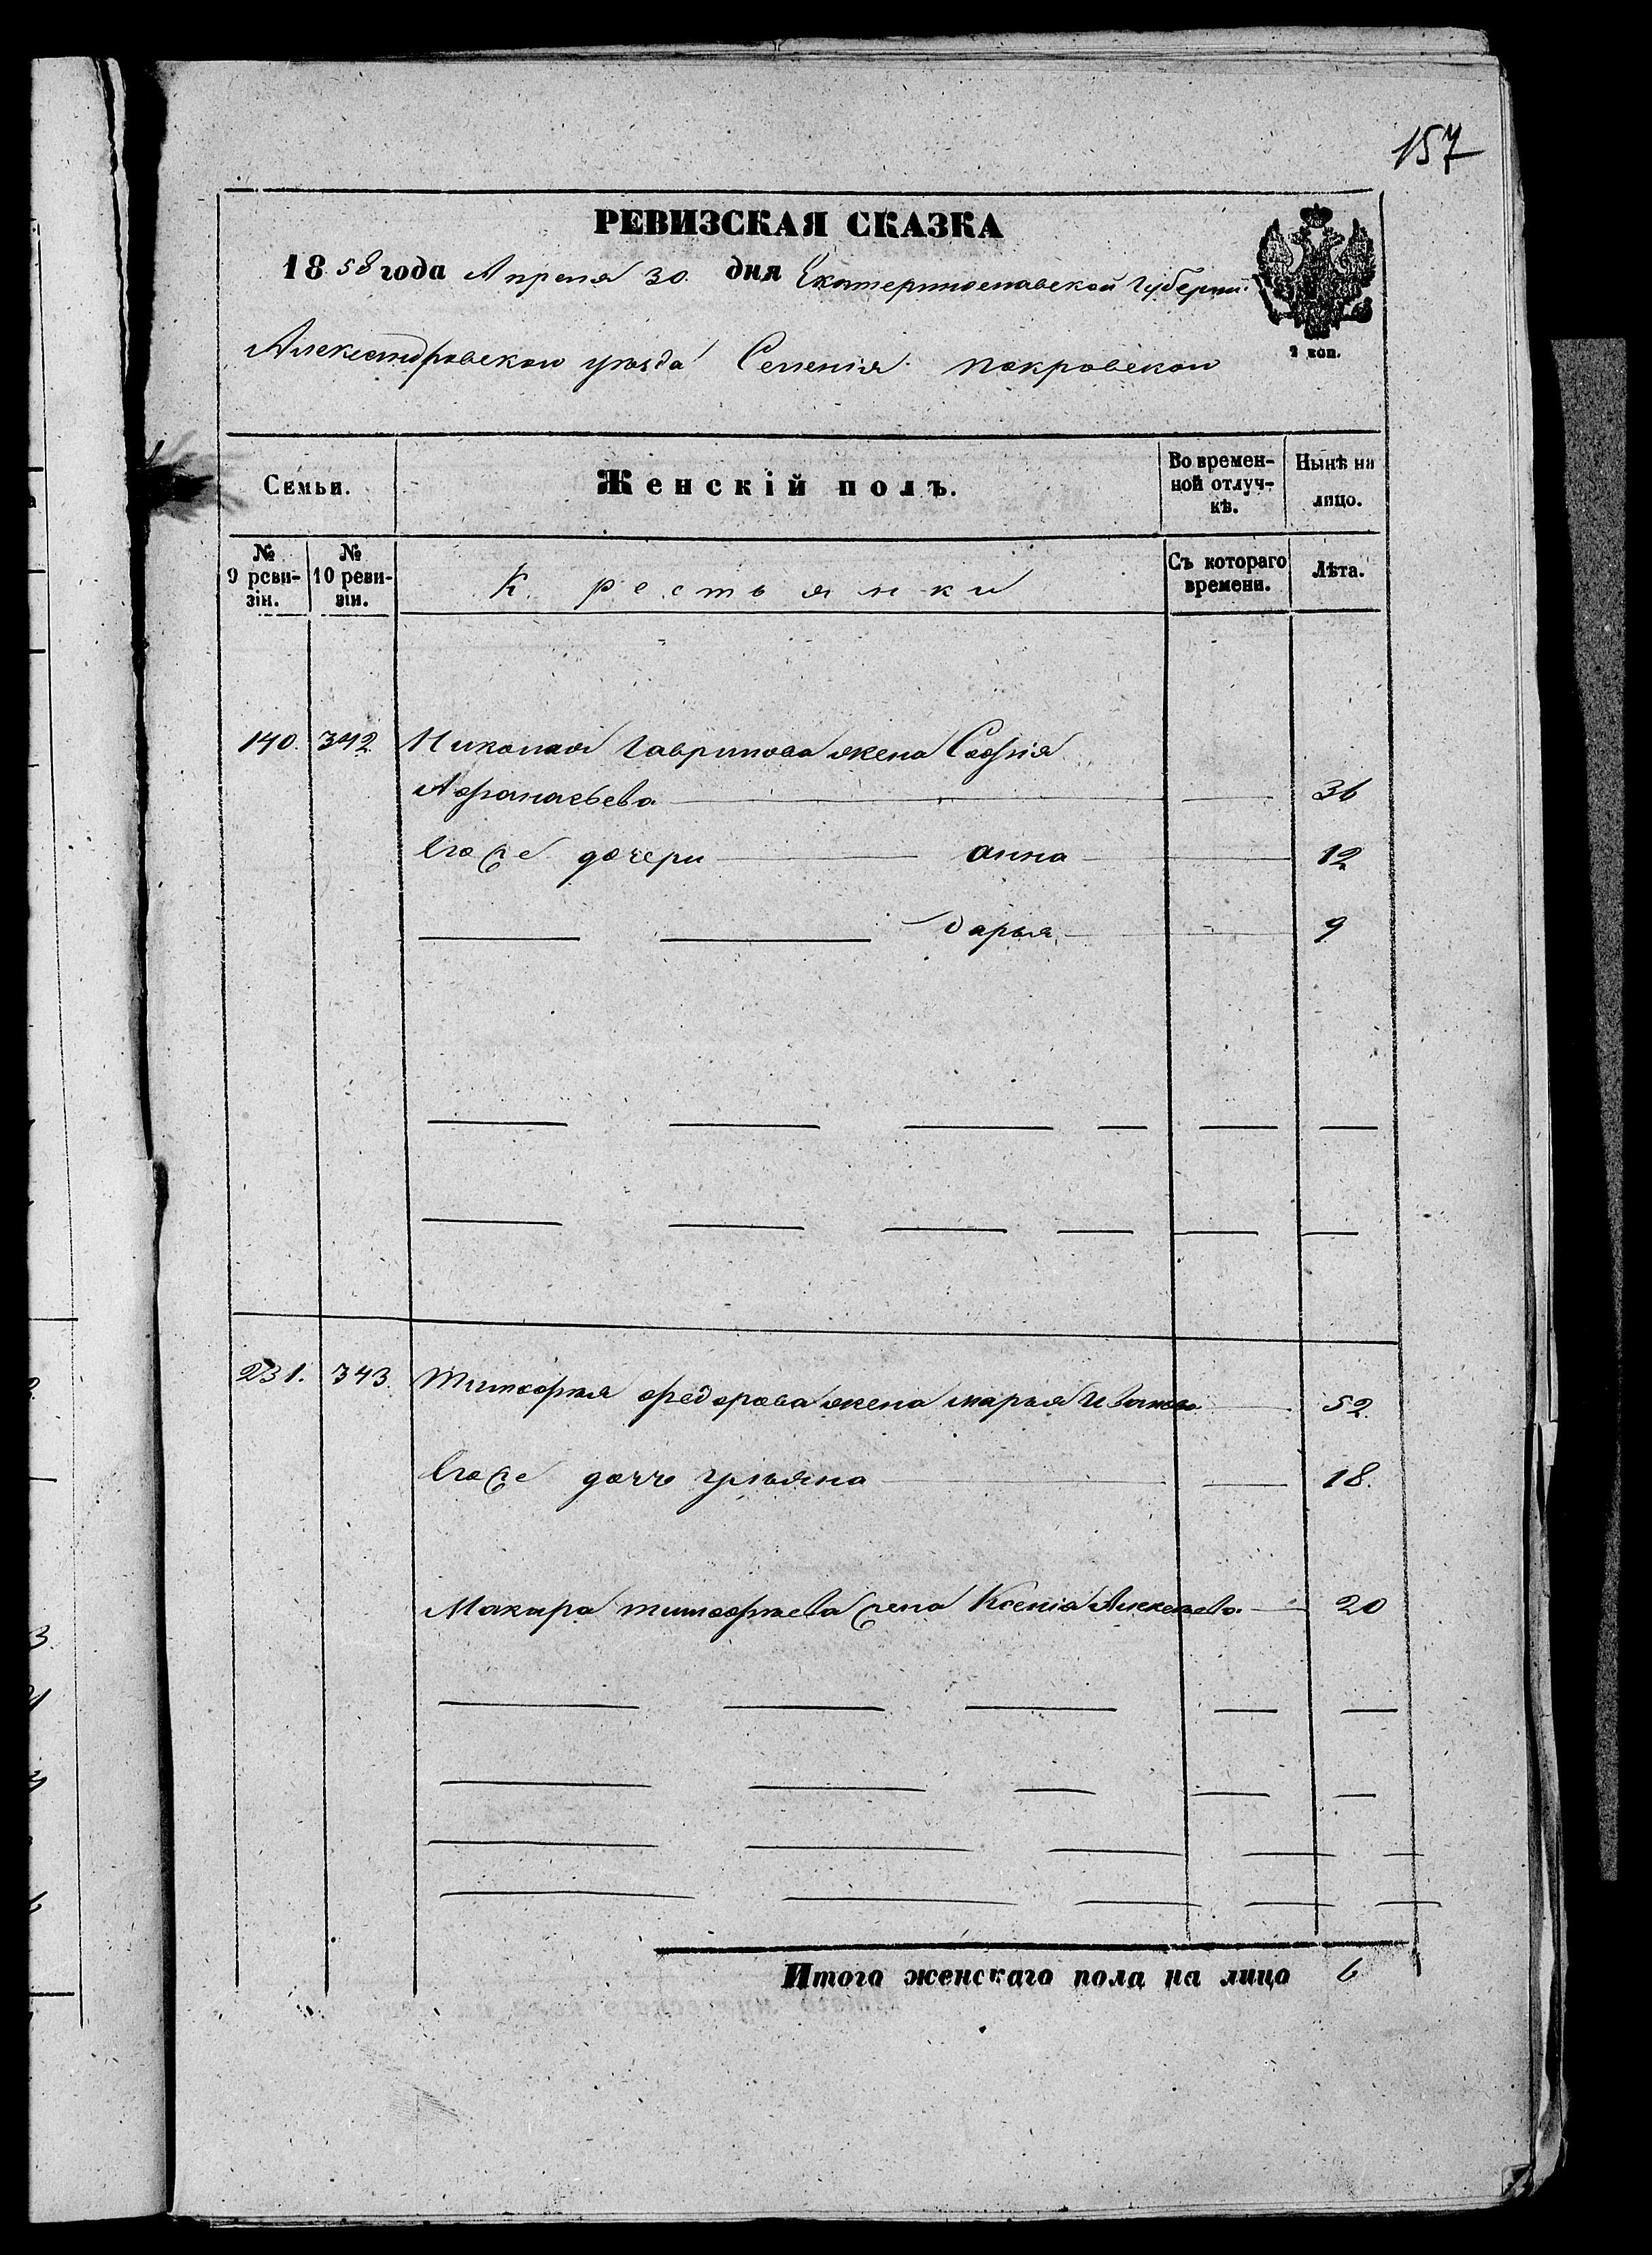 157
РЕВИЗСКАЯ СКАЗКА
1858 года Апреля 30. дня Екатеринославской губернии
Александровскаго уезда Селенія покровскаго
2 коп.
Семьи. Женскій полъ. Во временной отлучкѣ. Нынѣ на лицо.
№ 9 ревизіи. № 10 ревизіи. Крестьянки Съ котораго времени. Лѣта.
140. 342 Николая Гаврилова жена Софія
Афанасьева 36
Егоже дочери анна 12
дарья 9
231. 343. Тимофея федорова жена марья Иванова 52.
Егоже дочь ульяна 18.
Макара тимофеева жена Ксенія Алексеева 20
Итого женскаго пола на лицо 6